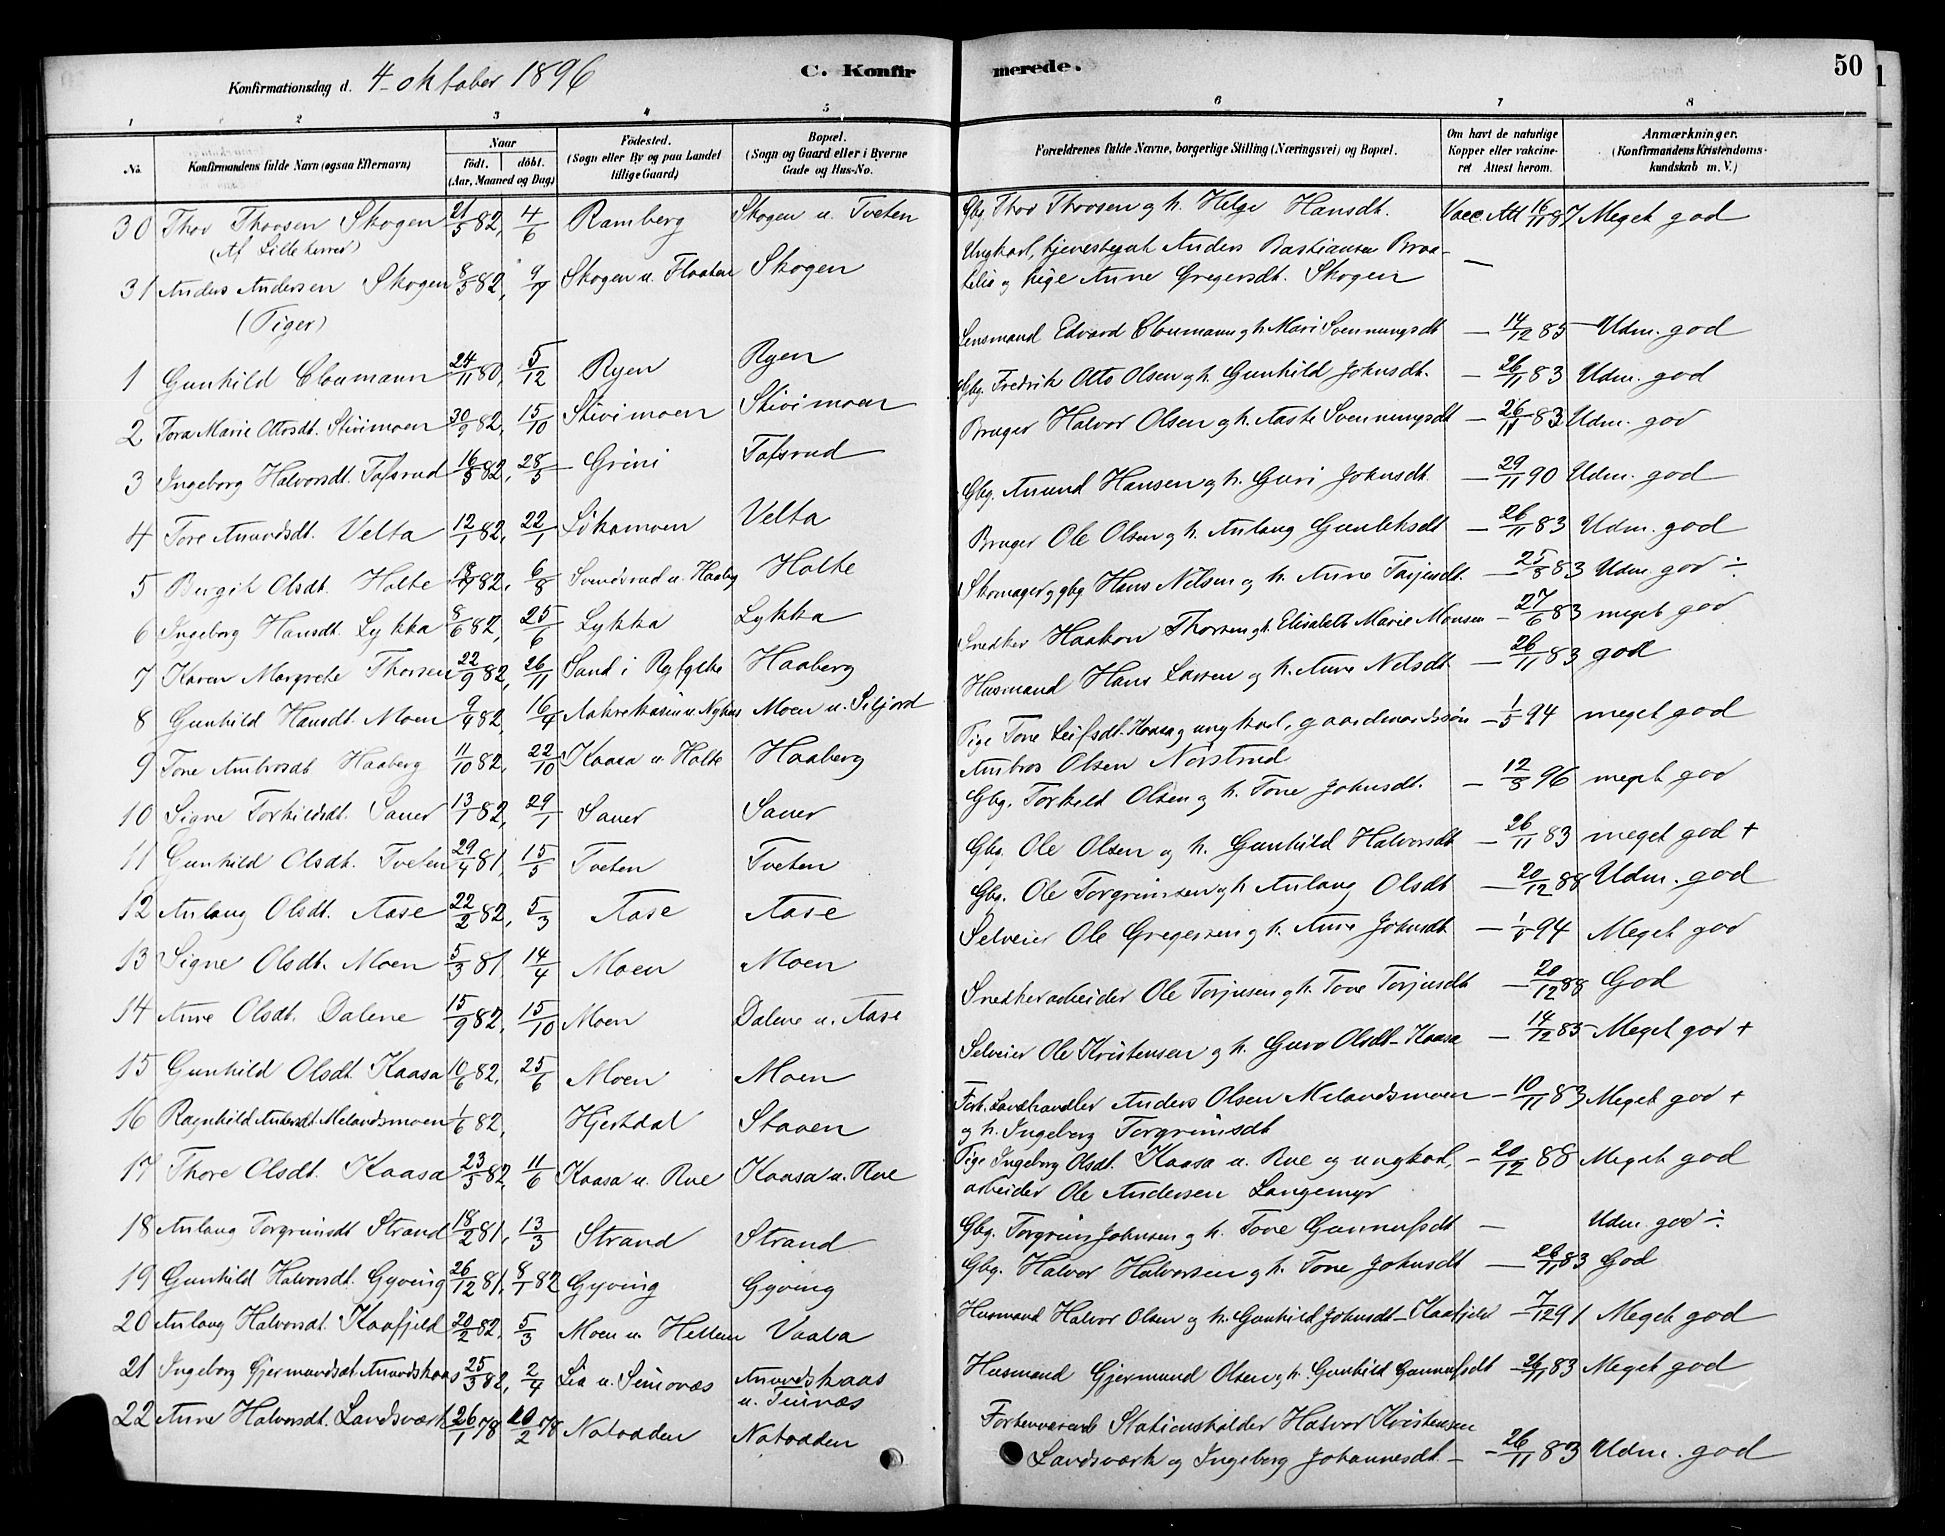 Konfirmationsdag d. 4 oktober 1896
C. Konfirmerede.
50
1 2 3 4 5 6 7 8
No. Konfirmandens fulde Navn (ogsaa Efternavn) Naar födt. döbt. (Aar, Maaned og Dag) Födested. (Sogn eller By og paa Landet tillige Gaard) Bopæl. (Sogn og Gaard eller i Byerne Gade og Hus-No. Forældrenes fulde Navne, borgerlige Stilling (Næringsvei) og Bopæl. Om havt de naturlige Kopper eller vakcineret Attest herom. Anmærkninger. (Konfirmandens Kristendomskundskab m. V.)
30 Thov Thovsen Skogen 21/5 82, 4/6 Ramberg Skogen u. Tveten Gbg. Thov Thovsen og h. Helge Hansdt. Vacc. Att 16/11 87 Meget god
(Af Lilleherred)
31 Anders Andersen Skogen 8/3 82, 9/4 Skogen u. Flaaten Skogen Ungkarl, tjenestegut Anders Bastiansen Braa-
lilia og pige Anne Gregersdt. Skogen —
(Piger)
1 Gunhild Cloumann 24/11 80, 5/12 Ryen Ryen Lensmand Edvard Cloumann og h. Mari Svennungsdt — 14/12 85 Udm. god
2 Tora Marie Ottosdt. Stivimoen 30/9 82, 15/10 Stivimoen Stivimoen Gbg. Fredrik Otto Olsen og h. Gunhild Johnsdt. — 26/11 83 Udm. god
3 Ingeborg Halvorsdt. Tofsrud 16/5 82, 28/5 Grini Tofsrud Bruger Halvor Olsen og h. Aaste Svennungsdt — 26/11 83 Udm. god
4 Tore Amundsdt. Velta 12/1 82, 22/1 Lökamoen Velta Gbg. Amund Hansen og h. Guri Johnsdt. — 29/11 90 Udm. god
5 Birgit Olsdt. Holte 82, 6/8 u. Haaby Holte Bruger Ole Olsen og h. Aslaug Gunleksdt — 26/11 83 Udm. god
6 Ingeborg Hansdt. Lykka 8/6 82, 25/6 Lykka Lykka Skomager og gbg Hans Nilsen og h. Anne Tarjeisdt. — 25/8 83 Udm. god ÷
7 Karen Margrethe Thorsen 22/9 82, 26/11 Sand i Ryfylke Haaberg Snedker Haakon Thorsen og h. Elisabeth Marie Monsen — 27/6 83 meget god
8 Gunhild Hansdt. Moen 9/4 82, 16/4 Moen u. Siljord Husmand Hans Larsen og h. Anne Nilsdt — 26/11 83 god
9 Tone Ambrosdt Haaberg 11/10 82, 22/10 Kaasa u Holte Haaberg Pige Tone Leifsdt. Kaasa og ungkarl, gaardmandssön — 1/5 94 meget god
Ambros Olsen Norstrud
10 Signe Torkildsdt. Sauer 13/1 82, 29/1 Sauer Sauer Gbg. Torkild Olsen og h. Tone Johnsdt. — 12/3 96 meget god
11 Gunhild Olsdt. Tveten 29/4 81, 15/5 Tveten Tveten Gbg. Ole Olsen og h. Gunhild Halvorsdt — 26/11 83 meget god +
12 Aslaug Olsdt. Aase 22/2 82, 5/3 Aase Aase Gbg. Ole Torgrimsen og h Aslaug Olsdt — 20/12 88 Udm. god
13 Signe Olsdt. Moen 5/3 81, 14/4 Moen Moen Selveier Ole Gregersen og h. Anne Johnsdt — 94 Meget god
14 Anne Olsdt. Dalene 15/9 82, 15/10 Moen Dalene u. Aase Snedkerarbeider Ole Torjusen og h. Tone Torjusdt — 20/12 88 God
15 Gunhild Olsdt. Kaasa 10/6 82, 25/6 Moen Moen Selveier Ole Kristensen og h. Guro Olsdt — Kaasa — 14/12 85 Meget god +
16 Ragnhild Andersdt. Melandsmoen 1/6 82, Hjertdal Staven Forh. Landhandler Anders Olsen Melandsmoen — 10/11 83 Meget god +
og h. Ingeborg Torgrimsdt
17 Thore Olsdt. Kaasa 23/5 82, 11/6 Kaasa u. Rue Kaasa u. Rue Pige Ingeborg Olsdt. Kaasa u. Rue og ungkarl, — 20/12 88 Meget god
arbeider Ole Andersen Langemyr
18 Aslaug Torgrimsdt Strand 18/2 81, 13/3 Strand Strand Gbg. Torgrim Johnsen og h. Tone Gunnufsdt — Udm. god ÷
19 Gunhild Halvorsdt. Gyving 26/12 81, 8/1 82 Gyving Gyving Gbg. Halvor Halvorsen og h. Tone Johnsdt — 26/11 83 God
20 Aslaug Halvorsdt. Kaafjeld 20/2 82, 5/3 Moen u. Hellem Vaala Husmand Halvor Olsen og h. Gunhild Johnsdt — Kaafjeld — 7/12 91 Meget god
21 Ingeborg Gjermundsdt. Amundskaas 25/3 82, 2/4 Lia u. Semsnæs Amundskaas
u. Tinnæs Husmand Gjermund Olsen og h. Gunhild Gunnufsdt — 26/11 83 Meget god
22 Anne Halvorsdt. Landsværk 26/1 78, 10/2 78 Notodden Notodden Forhenværende Stationsholder Halvor Kristensen
Landsværk og Ingeborg Johannesdt. — 26/11 83 Udm. god